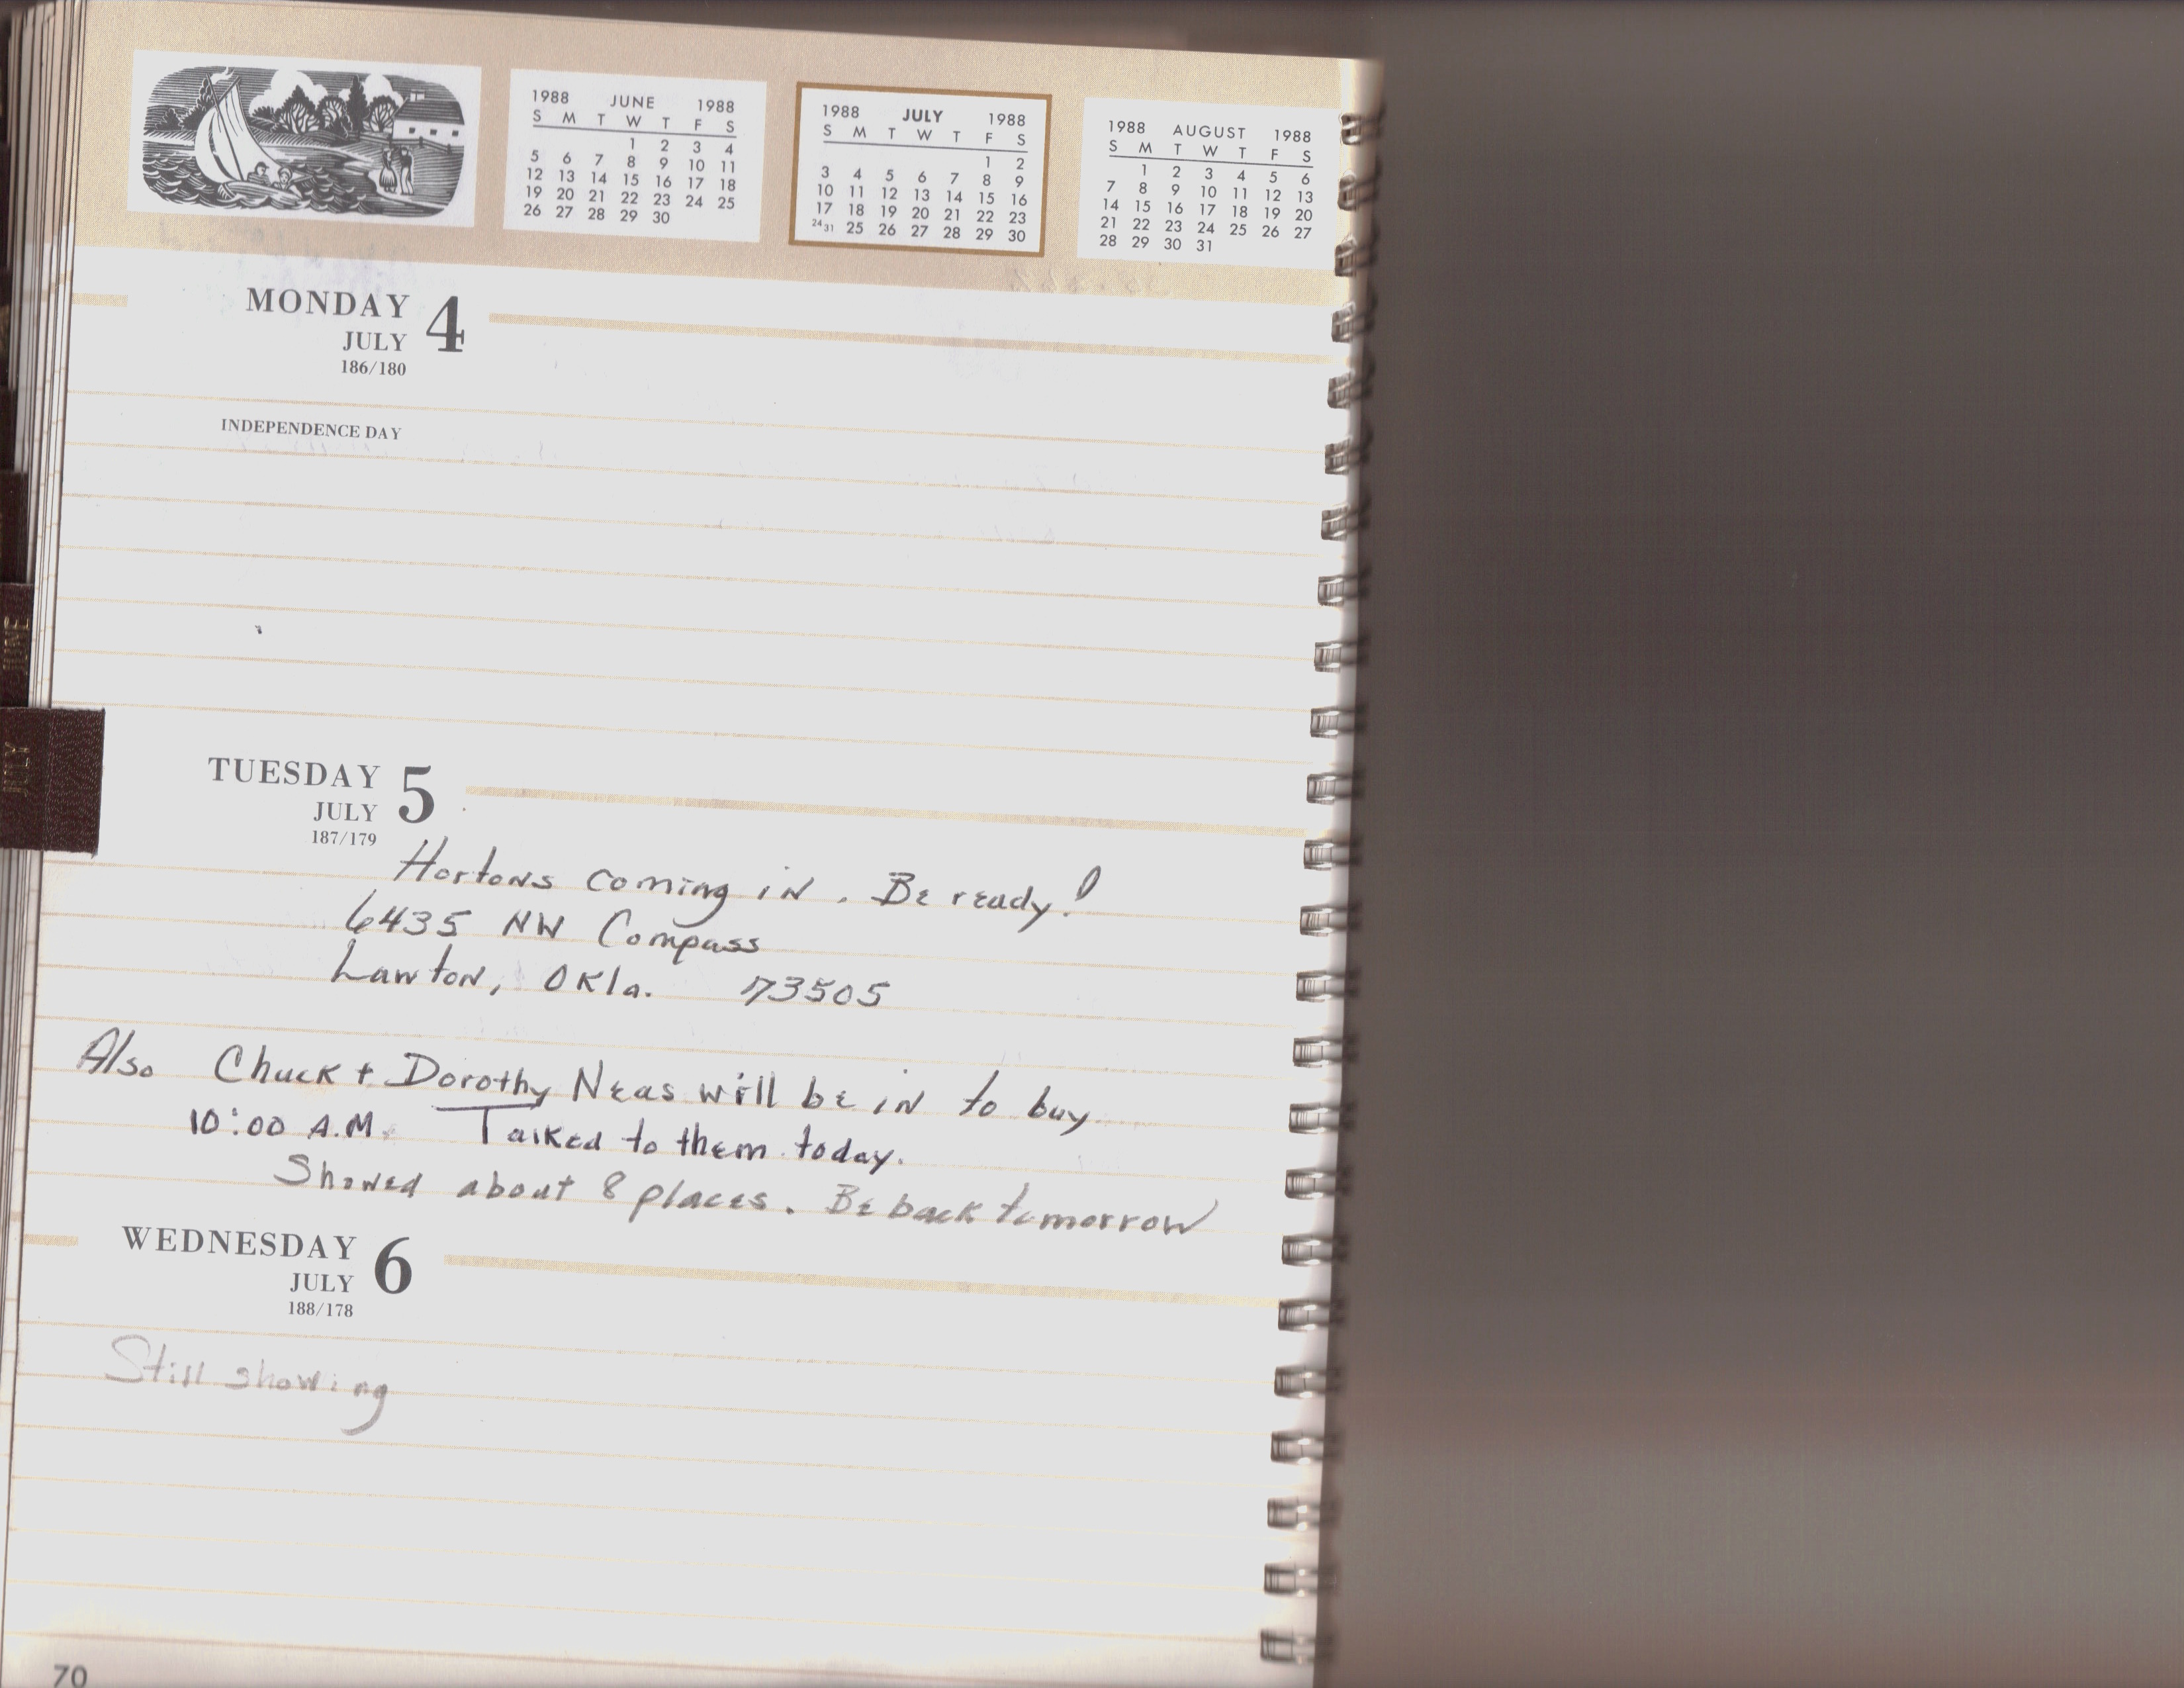 1988 JUNE 1988
S M T W T F S
1 2 3 4
5 6 7 8 9 10 11
12 13 14 15 16 17 18
19 20 21 22 23 24 25
26 27 28 29 30
1988 JULY 1988
S M T W T F S
1 2
3 4 5 6 7 8 9
10 11 12 13 14 15 16
17 18 19 20 21 22 23
24 31 25 26 27 28 29 30
1988 AUGUST 1988
S M T W T F S
1 2 3 4 5 6
7 8 9 10 11 12 13
14 15 16 17 18 19 20
21 22 23 24 25 26 27
28 29 30 31
MONDAY 4
JULY
186/180
INDEPENDENCE DAY
JUNE
JULY
TUESDAY 5
JULY
187/179
Hortons coming in. Be ready!
6435 NW Compass
Lawton, Okla. 73505
Also Chuck + Dorothy Neas will be in to buy
10:00 A.M. Talked to them today.
Showed about 8 places. Be back tomorrow
WEDNESDAY 6
JULY
188/178
Still showing
70